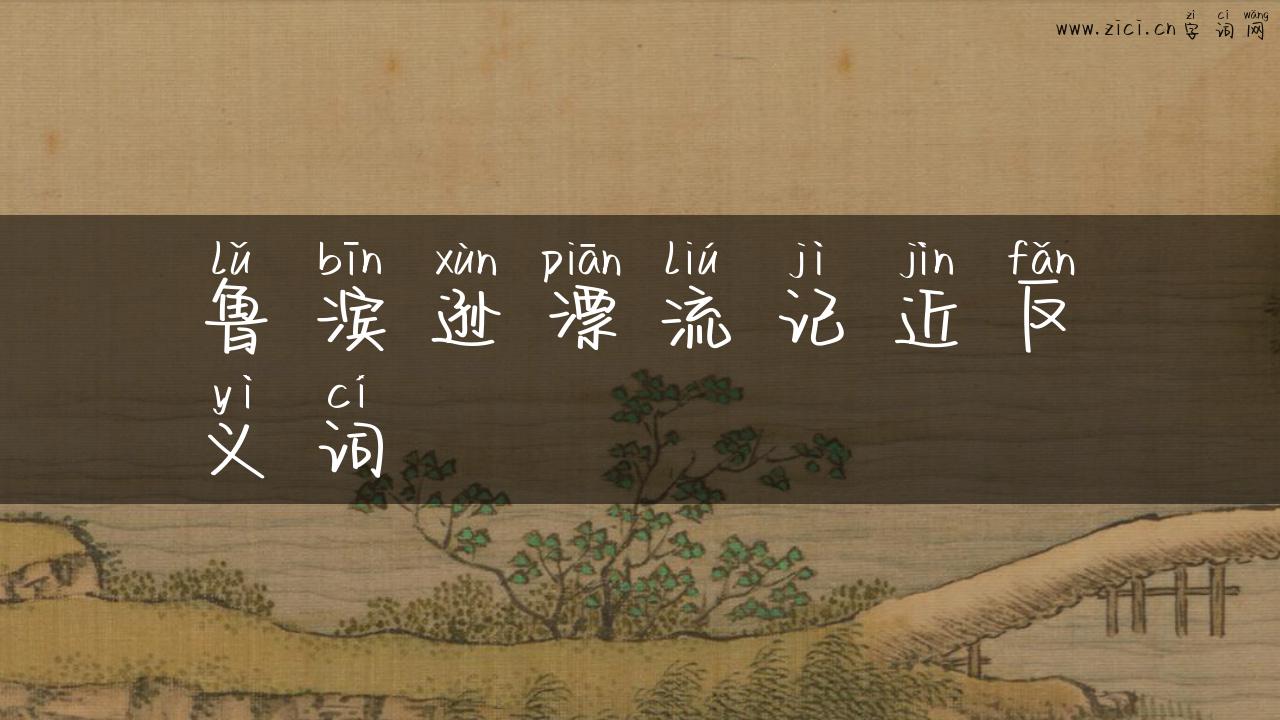 zì cí wǎng
www.zici.cn字词网
lǔ bīn xùn piān liú jì jìn fǎn
鲁滨逊漂流记近反
yì cí
义词